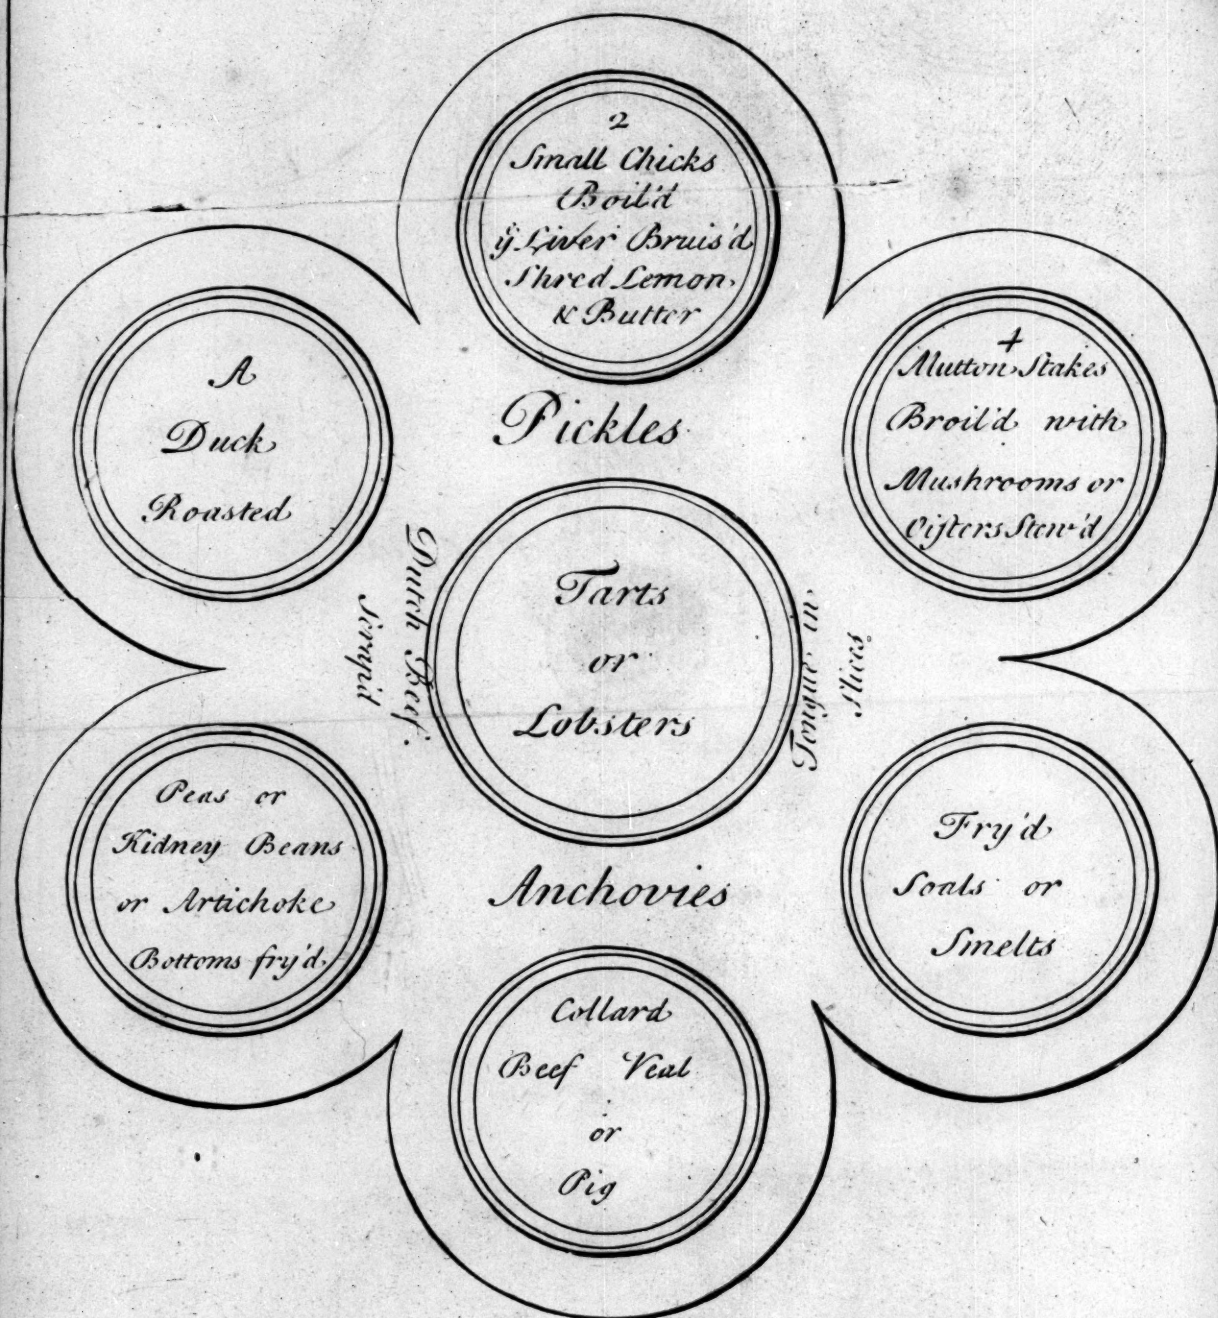 2
Small Chicks
Boil'd
ÿ Liver Bruis'd
Shred Lemon
& Butter
A
Duck
Roasted
4
Mutton Stakes
Broil'd with
Mushrooms or
Oisters Stew'd
Pickles
Dutch Beef
Scrap'd
Tarts
or
Lobsters
Tongue in
slices
Peas or
Kidney Beans
or Artichoke
Bottoms fry'd
Anchovies
Fry'd
Soals or
Smelts
Collard
Beef Veal
or
Pig